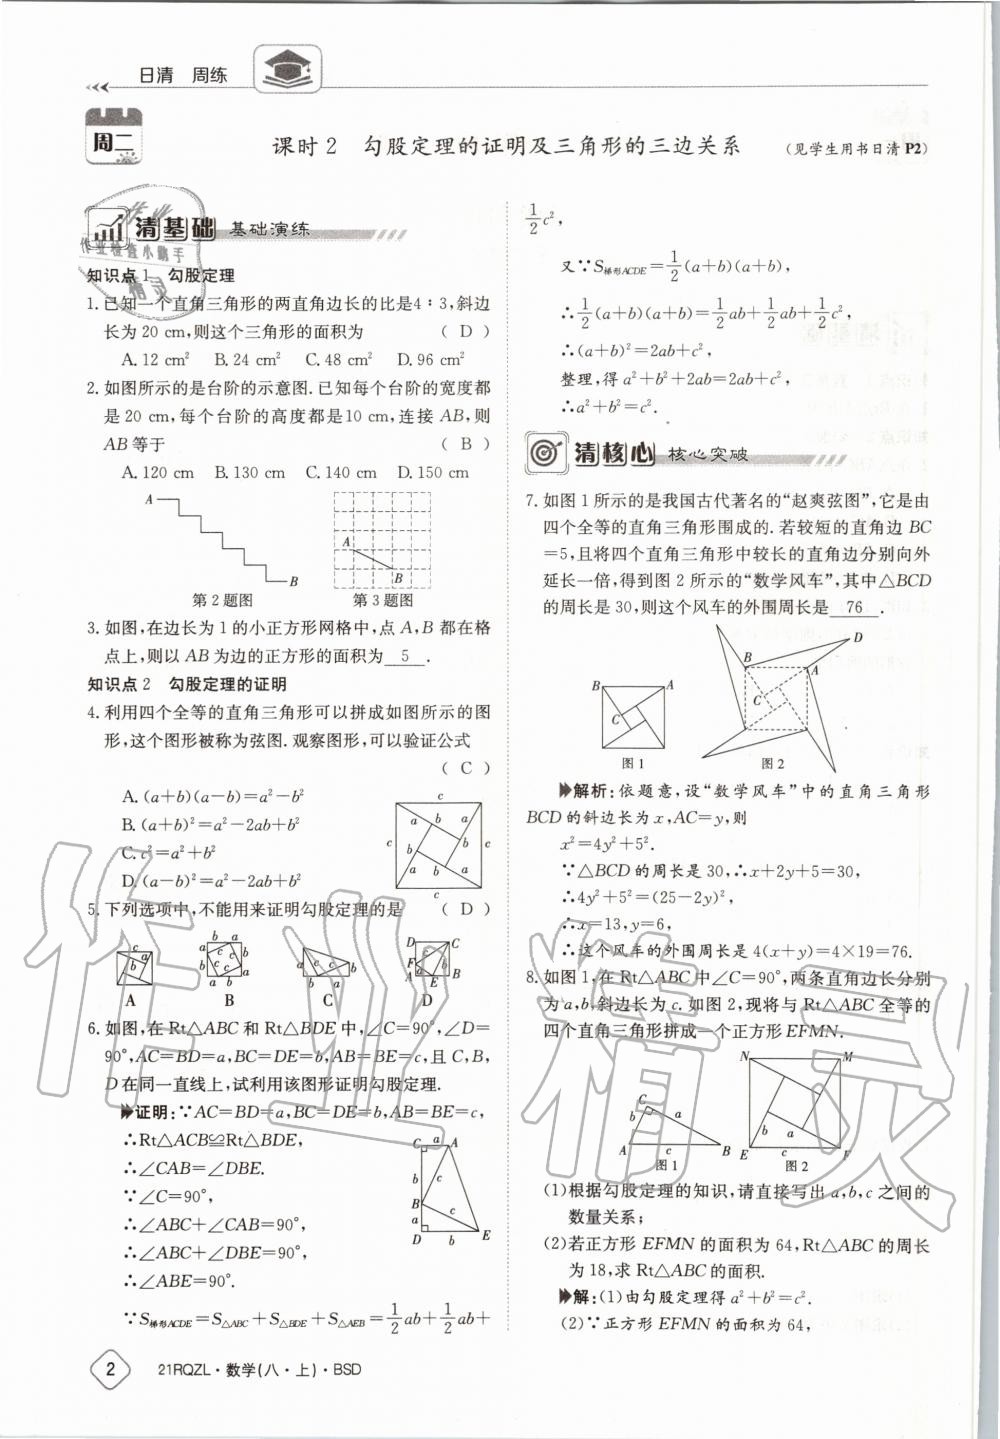 日清 周练
周二
课时2 勾股定理的证明及三角形的三边关系 (见学生用书日清P2)
清基础 基础演练
知识点1 勾股定理
1. 已知一个直角三角形的两直角边长的比是4∶3,斜边
长为20 cm,则这个三角形的面积为 ( D )
A. 12 cm² B. 24 cm² C. 48 cm² D. 96 cm²
2. 如图所示的是台阶的示意图. 已知每个台阶的宽度都
是20 cm,每个台阶的高度都是10 cm,连接 AB,则
AB等于 ( B )
A. 120 cm B. 130 cm C. 140 cm D. 150 cm
A B
A B
第2题图 第3题图
3. 如图,在边长为1的小正方形网格中,点A,B都在格
点上,则以AB为边的正方形的面积为 5 .
知识点2 勾股定理的证明
4. 利用四个全等的直角三角形可以拼成如图所示的图
形,这个图形被称为弦图. 观察图形,可以验证公式
( C )
A. (a+b)(a-b)=a²-b²
B. (a+b)²=a²-2ab+b²
C. c²=a²+b²
D. (a-b)²=a²-2ab+b²
c
a b a
c b b c
a b a
c
5. 下列选项中,不能用来证明勾股定理的是 ( D )
A B C D
6. 如图,在Rt△ABC和Rt△BDE中,∠C=90°,∠D=
90°,AC=BD=a,BC=DE=b,AB=BE=c,且C,B,
D在同一直线上,试利用该图形证明勾股定理.
证明:∵AC=BD=a,BC=DE=b,AB=BE=c,
∴Rt△ACB≌Rt△BDE,
∴∠CAB=∠DBE.
∵∠C=90°,
∴∠ABC+∠CAB=90°,
∴∠ABC+∠DBE=90°,
∴∠ABE=90°.
C a A
b c
B
a c
D b E
∵S梯形ACDE=S△ABC+S△BDE+S△AEB=1/2ab+1/2ab+
1/2c²,
又∵S梯形ACDE=1/2(a+b)(a+b),
∴1/2(a+b)(a+b)=1/2ab+1/2ab+1/2c²,
∴(a+b)²=2ab+c²,
整理,得a²+b²+2ab=2ab+c²,
∴a²+b²=c².
清核心 核心突破
7. 如图1所示的是我国古代著名的“赵爽弦图”,它是由
四个全等的直角三角形围成的. 若较短的直角边BC
=5,且将四个直角三角形中较长的直角边分别向外
延长一倍,得到图2所示的“数学风车”,其中△BCD
的周长是30,则这个风车的外围周长是 76 .
B A
C
图1
B D
A
C
图2
解析:依题意,设“数学风车”中的直角三角形
BCD的斜边长为x,AC=y,则
x²=4y²+5².
∵△BCD的周长是30,∴x+2y+5=30,
∴4y²+5²=(25-2y)²,
∴x=13,y=6,
∴这个风车的外围周长是4(x+y)=4×19=76.
8. 如图1,在Rt△ABC中∠C=90°,两条直角边长分别
为a,b,斜边长为c. 如图2,现将与Rt△ABC全等的
四个直角三角形拼成一个正方形EFMN.
C
b a
A c B
图1
N M
b a
E c F
图2
(1)根据勾股定理的知识,请直接写出a,b,c之间的
数量关系;
(2)若正方形EFMN的面积为64,Rt△ABC的周长
为18,求Rt△ABC的面积.
解:(1)由勾股定理得a²+b²=c².
(2)∵正方形EFMN的面积为64,
2 21RQZL·数学(八·上)·BSD
作业精灵
作业检查小助手